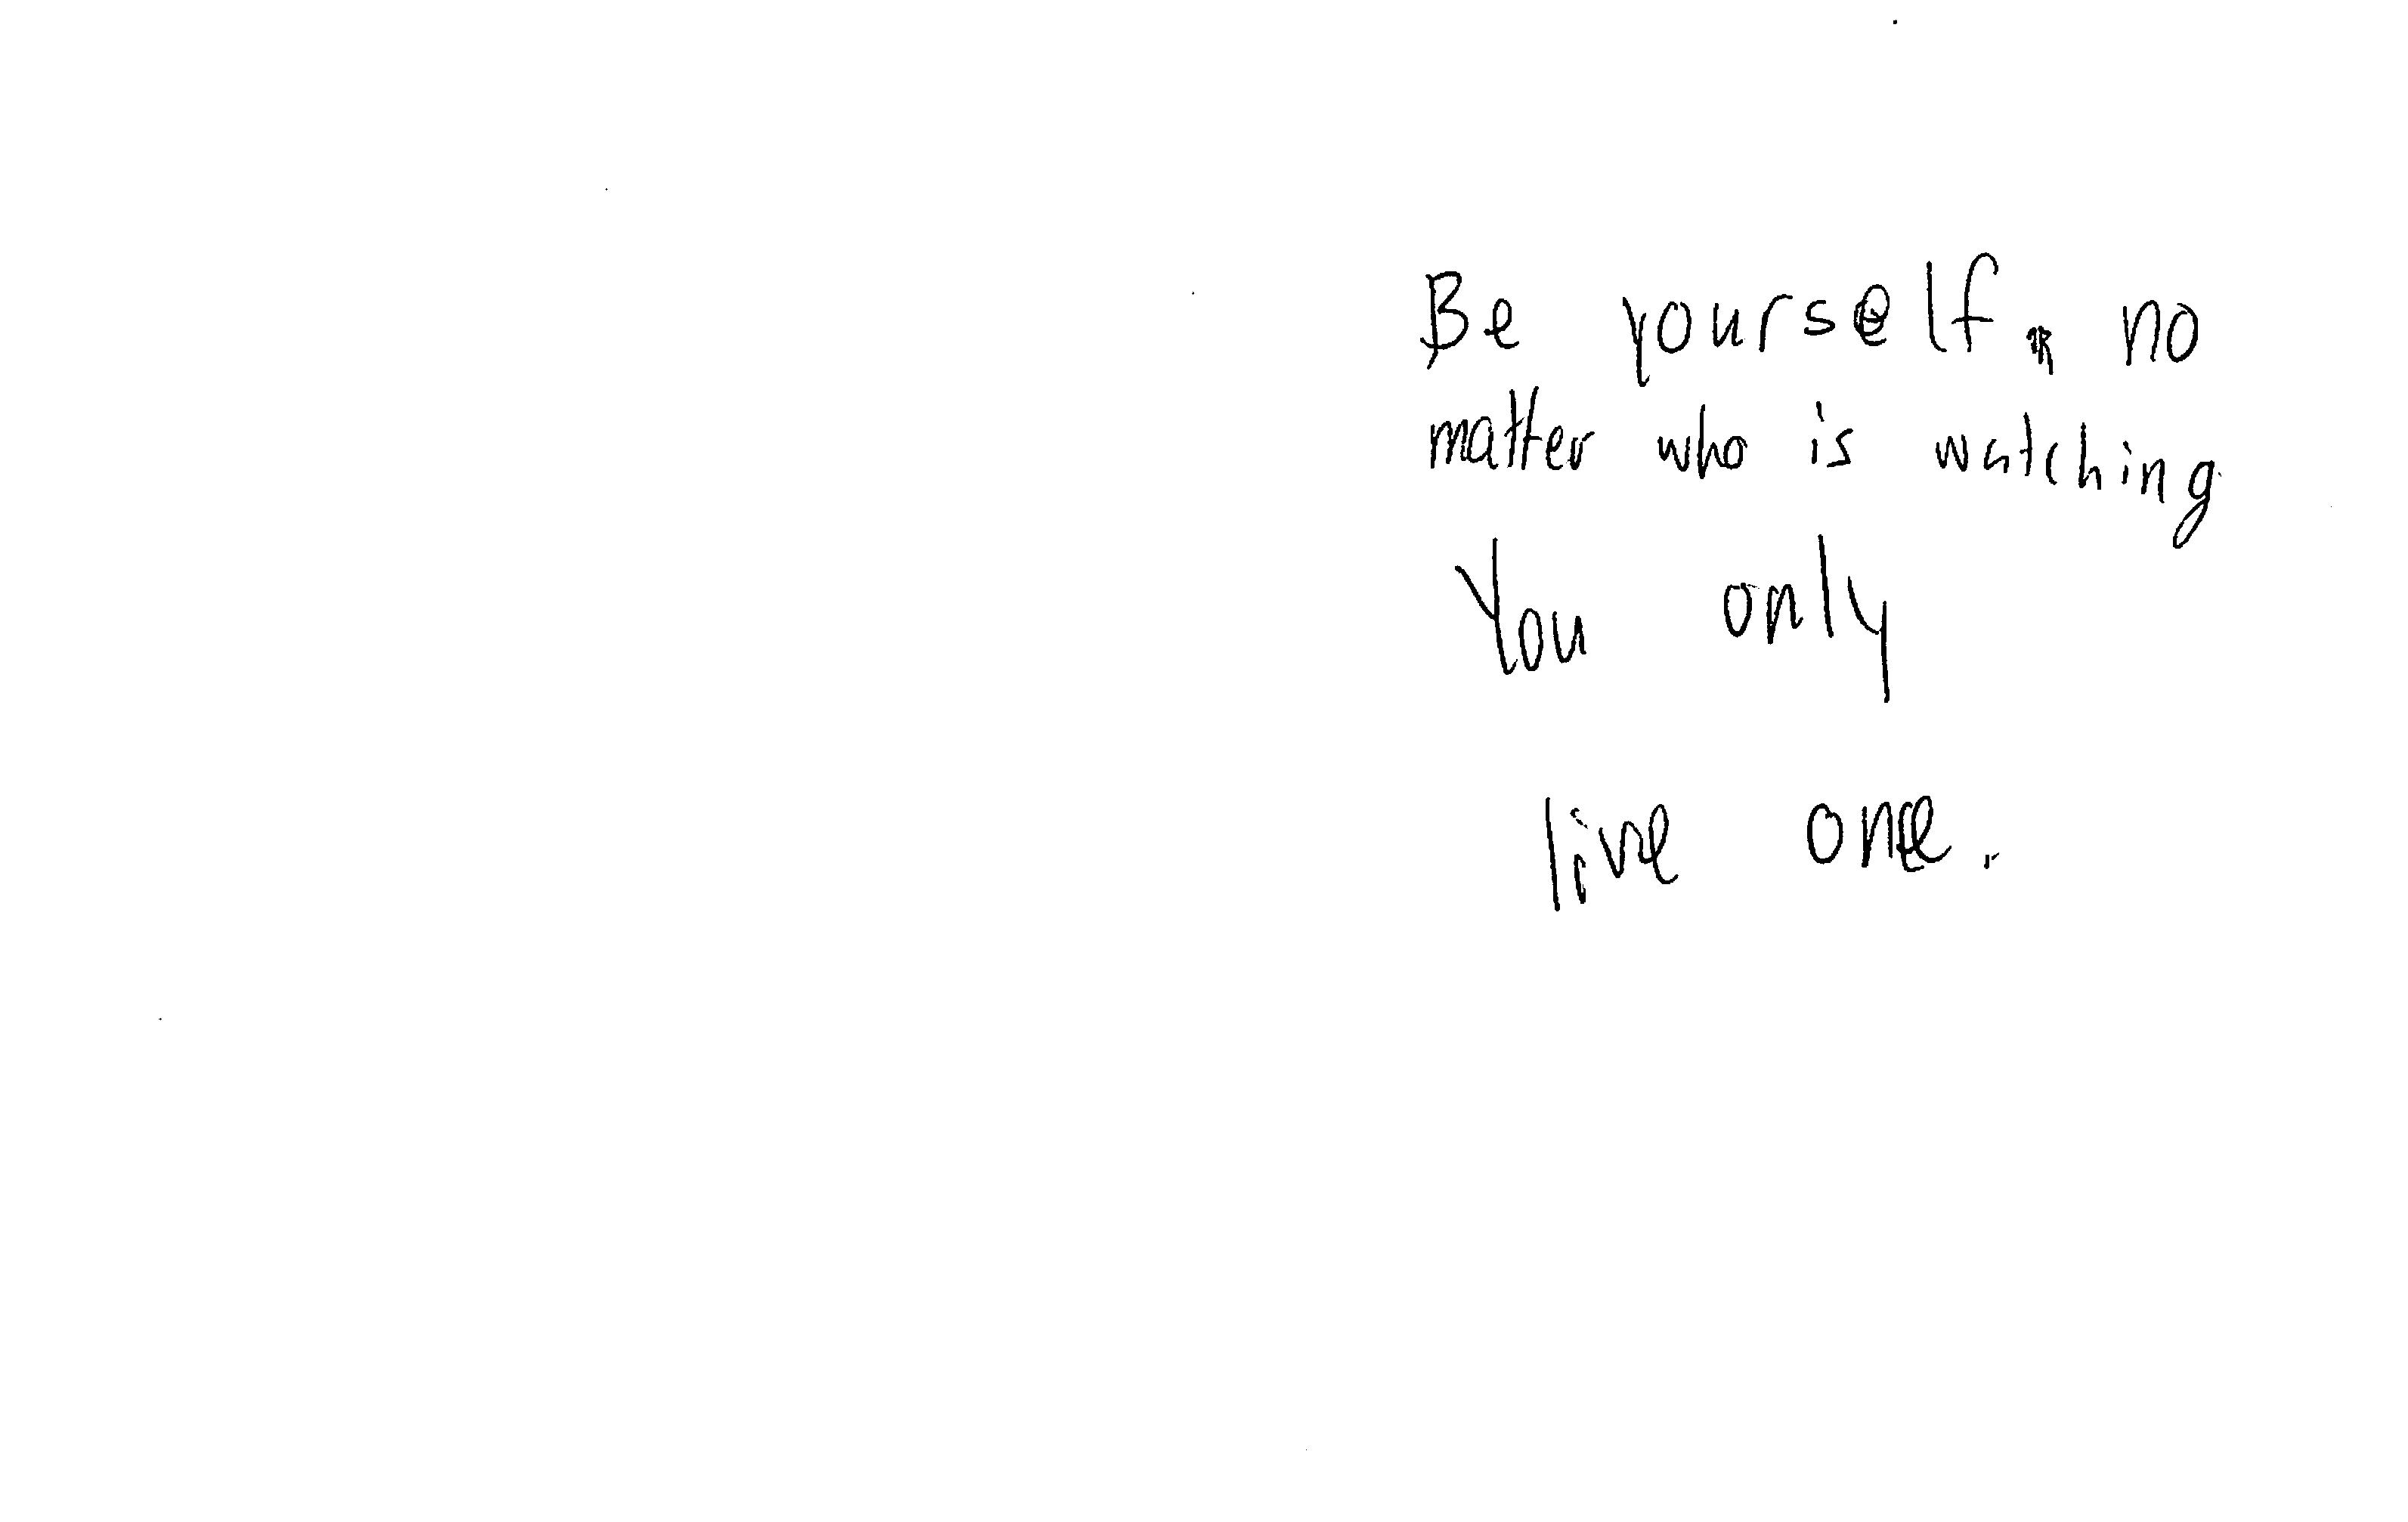 Be yourself, no
matter who is watching
You only
live once.